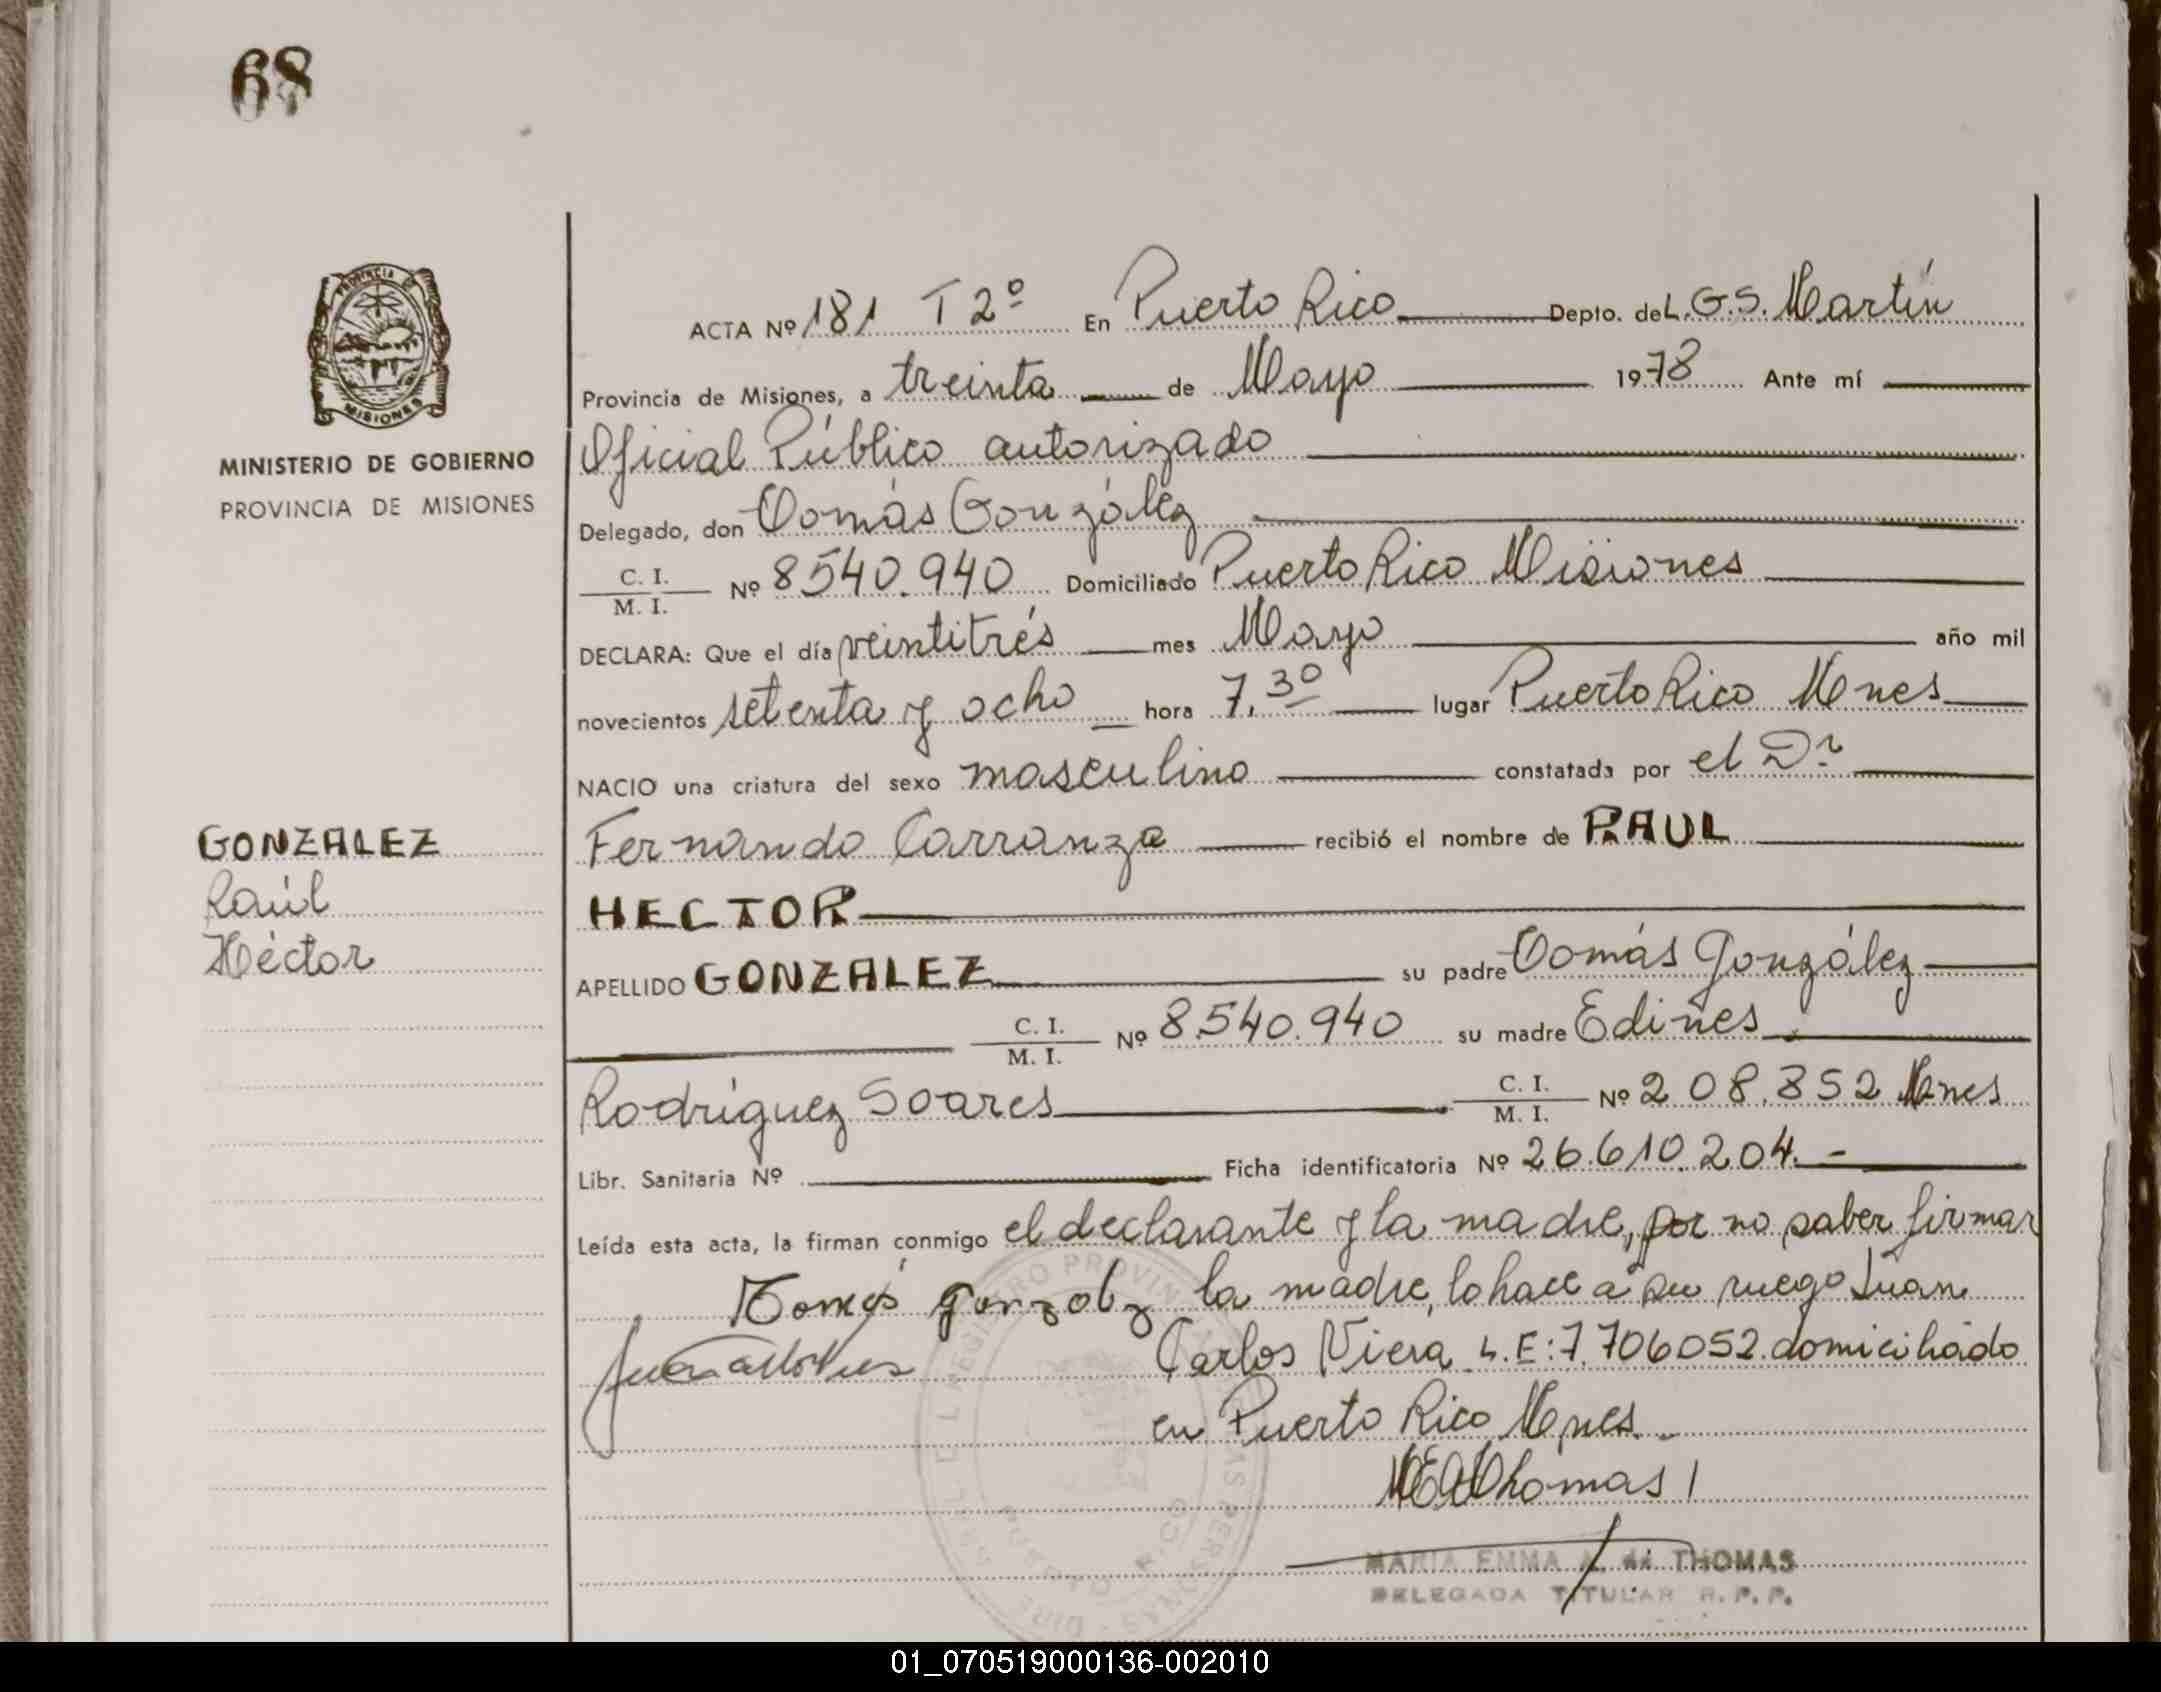 68
PROVINCIA
MISIONES
MINISTERIO DE GOBIERNO
PROVINCIA DE MISIONES
ACTA Nº 181 T 2º En Puerto Rico Depto. de L.G.S. Martín
Provincia de Misiones, a treinta de Mayo 1978 Ante mí
Oficial Público autorizado
Delegado, don Tomás González
C. I. / M. I. Nº 8540.940 Domiciliado Puerto Rico Misiones
DECLARA: Que el día veintitrés mes Mayo año mil
novecientos setenta y ocho hora 7,30 lugar Puerto Rico Mnes
NACIO una criatura del sexo masculino constatada por el Dr
Fernando Carranza recibió el nombre de RAUL
HECTOR
APELLIDO GONZALEZ su padre Tomás González
C. I. / M. I. Nº 8.540.940 su madre Edines
Rodríguez Soares C. I. / M. I. Nº 208.352 Mnes
Libr. Sanitaria Nº Ficha identificatoria Nº 26.610.204.-
Leída esta acta, la firman conmigo el declarante y la madre, por no saber firmar
Tomás Gonzalez la madre, lo hace a su ruego Juan
Carlos Viera L.E: 7.706052 domiciliado
en Puerto Rico Mnes.
MEAThomas
MARIA EMMA A. de THOMAS
DELEGADA TITULAR R. P. P.
GONZALEZ
Raúl
Héctor
PUERTO RICO
01_070519000136-002010